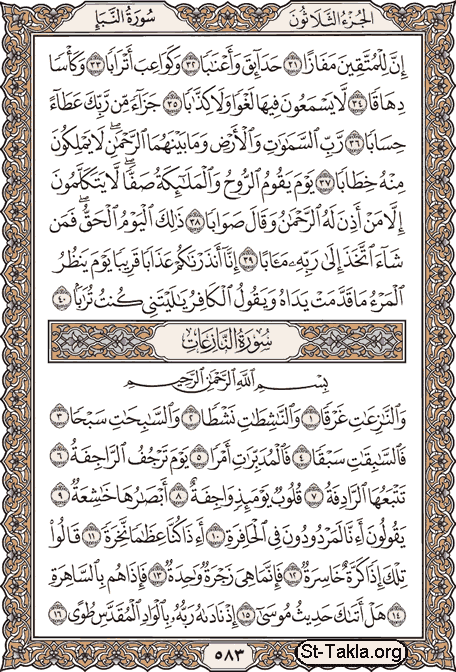 الجزء الثلاثون
سورة النبإ
إِنَّ لِلْمُتَّقِينَ مَفَازًا ٣١ حَدَآئِقَ وَأَعْنَٰبًا ٣٢ وَكَوَاعِبَ أَتْرَابًا ٣٣ وَكَأْسًا
دِهَاقًا ٣٤ لَّا يَسْمَعُونَ فِيهَا لَغْوًا وَلَا كِذَّٰبًا ٣٥ جَزَآءً مِّن رَّبِّكَ عَطَآءً
حِسَابًا ٣٦ رَّبِّ ٱلسَّمَٰوَٰتِ وَٱلْأَرْضِ وَمَا بَيْنَهُمَا ٱلرَّحْمَٰنِ ۖ لَا يَمْلِكُونَ
مِنْهُ خِطَابًا ٣٧ يَوْمَ يَقُومُ ٱلرُّوحُ وَٱلْمَلَٰٓئِكَةُ صَفًّا ۖ لَّا يَتَكَلَّمُونَ
إِلَّا مَنْ أَذِنَ لَهُ ٱلرَّحْمَٰنُ وَقَالَ صَوَابًا ٣٨ ذَٰلِكَ ٱلْيَوْمُ ٱلْحَقُّ ۖ فَمَن
شَآءَ ٱتَّخَذَ إِلَىٰ رَبِّهِۦ مَـَٔابًا ٣٩ إِنَّآ أَنذَرْنَٰكُمْ عَذَابًا قَرِيبًا يَوْمَ يَنظُرُ
ٱلْمَرْءُ مَا قَدَّمَتْ يَدَاهُ وَيَقُولُ ٱلْكَافِرُ يَٰلَيْتَنِى كُنتُ تُرَٰبًۢا ٤٠
سورة النازعات
بِسْمِ ٱللَّهِ ٱلرَّحْمَٰنِ ٱلرَّحِيمِ
وَٱلنَّٰزِعَٰتِ غَرْقًا ١ وَٱلنَّٰشِطَٰتِ نَشْطًا ٢ وَٱلسَّٰبِحَٰتِ سَبْحًا ٣
فَٱلسَّٰبِقَٰتِ سَبْقًا ٤ فَٱلْمُدَبِّرَٰتِ أَمْرًا ٥ يَوْمَ تَرْجُفُ ٱلرَّاجِفَةُ ٦
تَتْبَعُهَا ٱلرَّادِفَةُ ٧ قُلُوبٌ يَوْمَئِذٍ وَاجِفَةٌ ٨ أَبْصَٰرُهَا خَٰشِعَةٌ ٩
يَقُولُونَ أَءِنَّا لَمَرْدُودُونَ فِى ٱلْحَافِرَةِ ١٠ أَءِذَا كُنَّا عِظَٰمًا نَّخِرَةً ١١ قَالُوا۟
تِلْكَ إِذًا كَرَّةٌ خَاسِرَةٌ ١٢ فَإِنَّمَا هِىَ زَجْرَةٌ وَٰحِدَةٌ ١٣ فَإِذَا هُم بِٱلسَّاهِرَةِ
١٤ هَلْ أَتَىٰكَ حَدِيثُ مُوسَىٰٓ ١٥ إِذْ نَادَىٰهُ رَبُّهُۥ بِٱلْوَادِ ٱلْمُقَدَّسِ طُوًى ١٦
٥٨٣
St-Takla.org